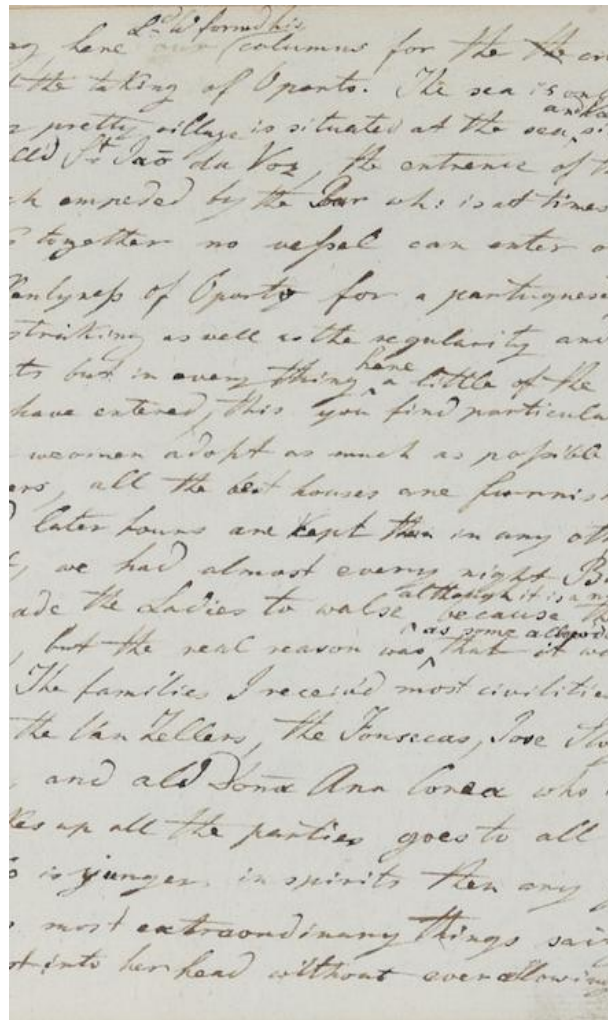 Ld. W formed his
ng here our columns for the the
t the taking of Oporto. The sea is only
and ha
pretty village is situated at the sea si
St. Jaõ da Voz, the entrance of th
ch empeded by the Bar wh: is at times
together no vessel can enter o
enlyness of Oporto for a partuguese
striking as well as the regularity and
here
ts but in every thing ^ a little of the
have entered, this you find particula
weomen adopt as much as possible
ers, all the best houses are furnis
later hours are kept than in any oth
, we had almost every night B
although it is a
ade the Ladies to walse because th
as some alleged
, but the real reason was ^ that it wo
The families I receivd most civilities
the Van Zellers, the Fonsecas, Jose
, and old Donã Ana Correa who
kes up all the parties goes to all
is younger in spirits then any
most extraordinary things sai
ot into her head without ever allowing